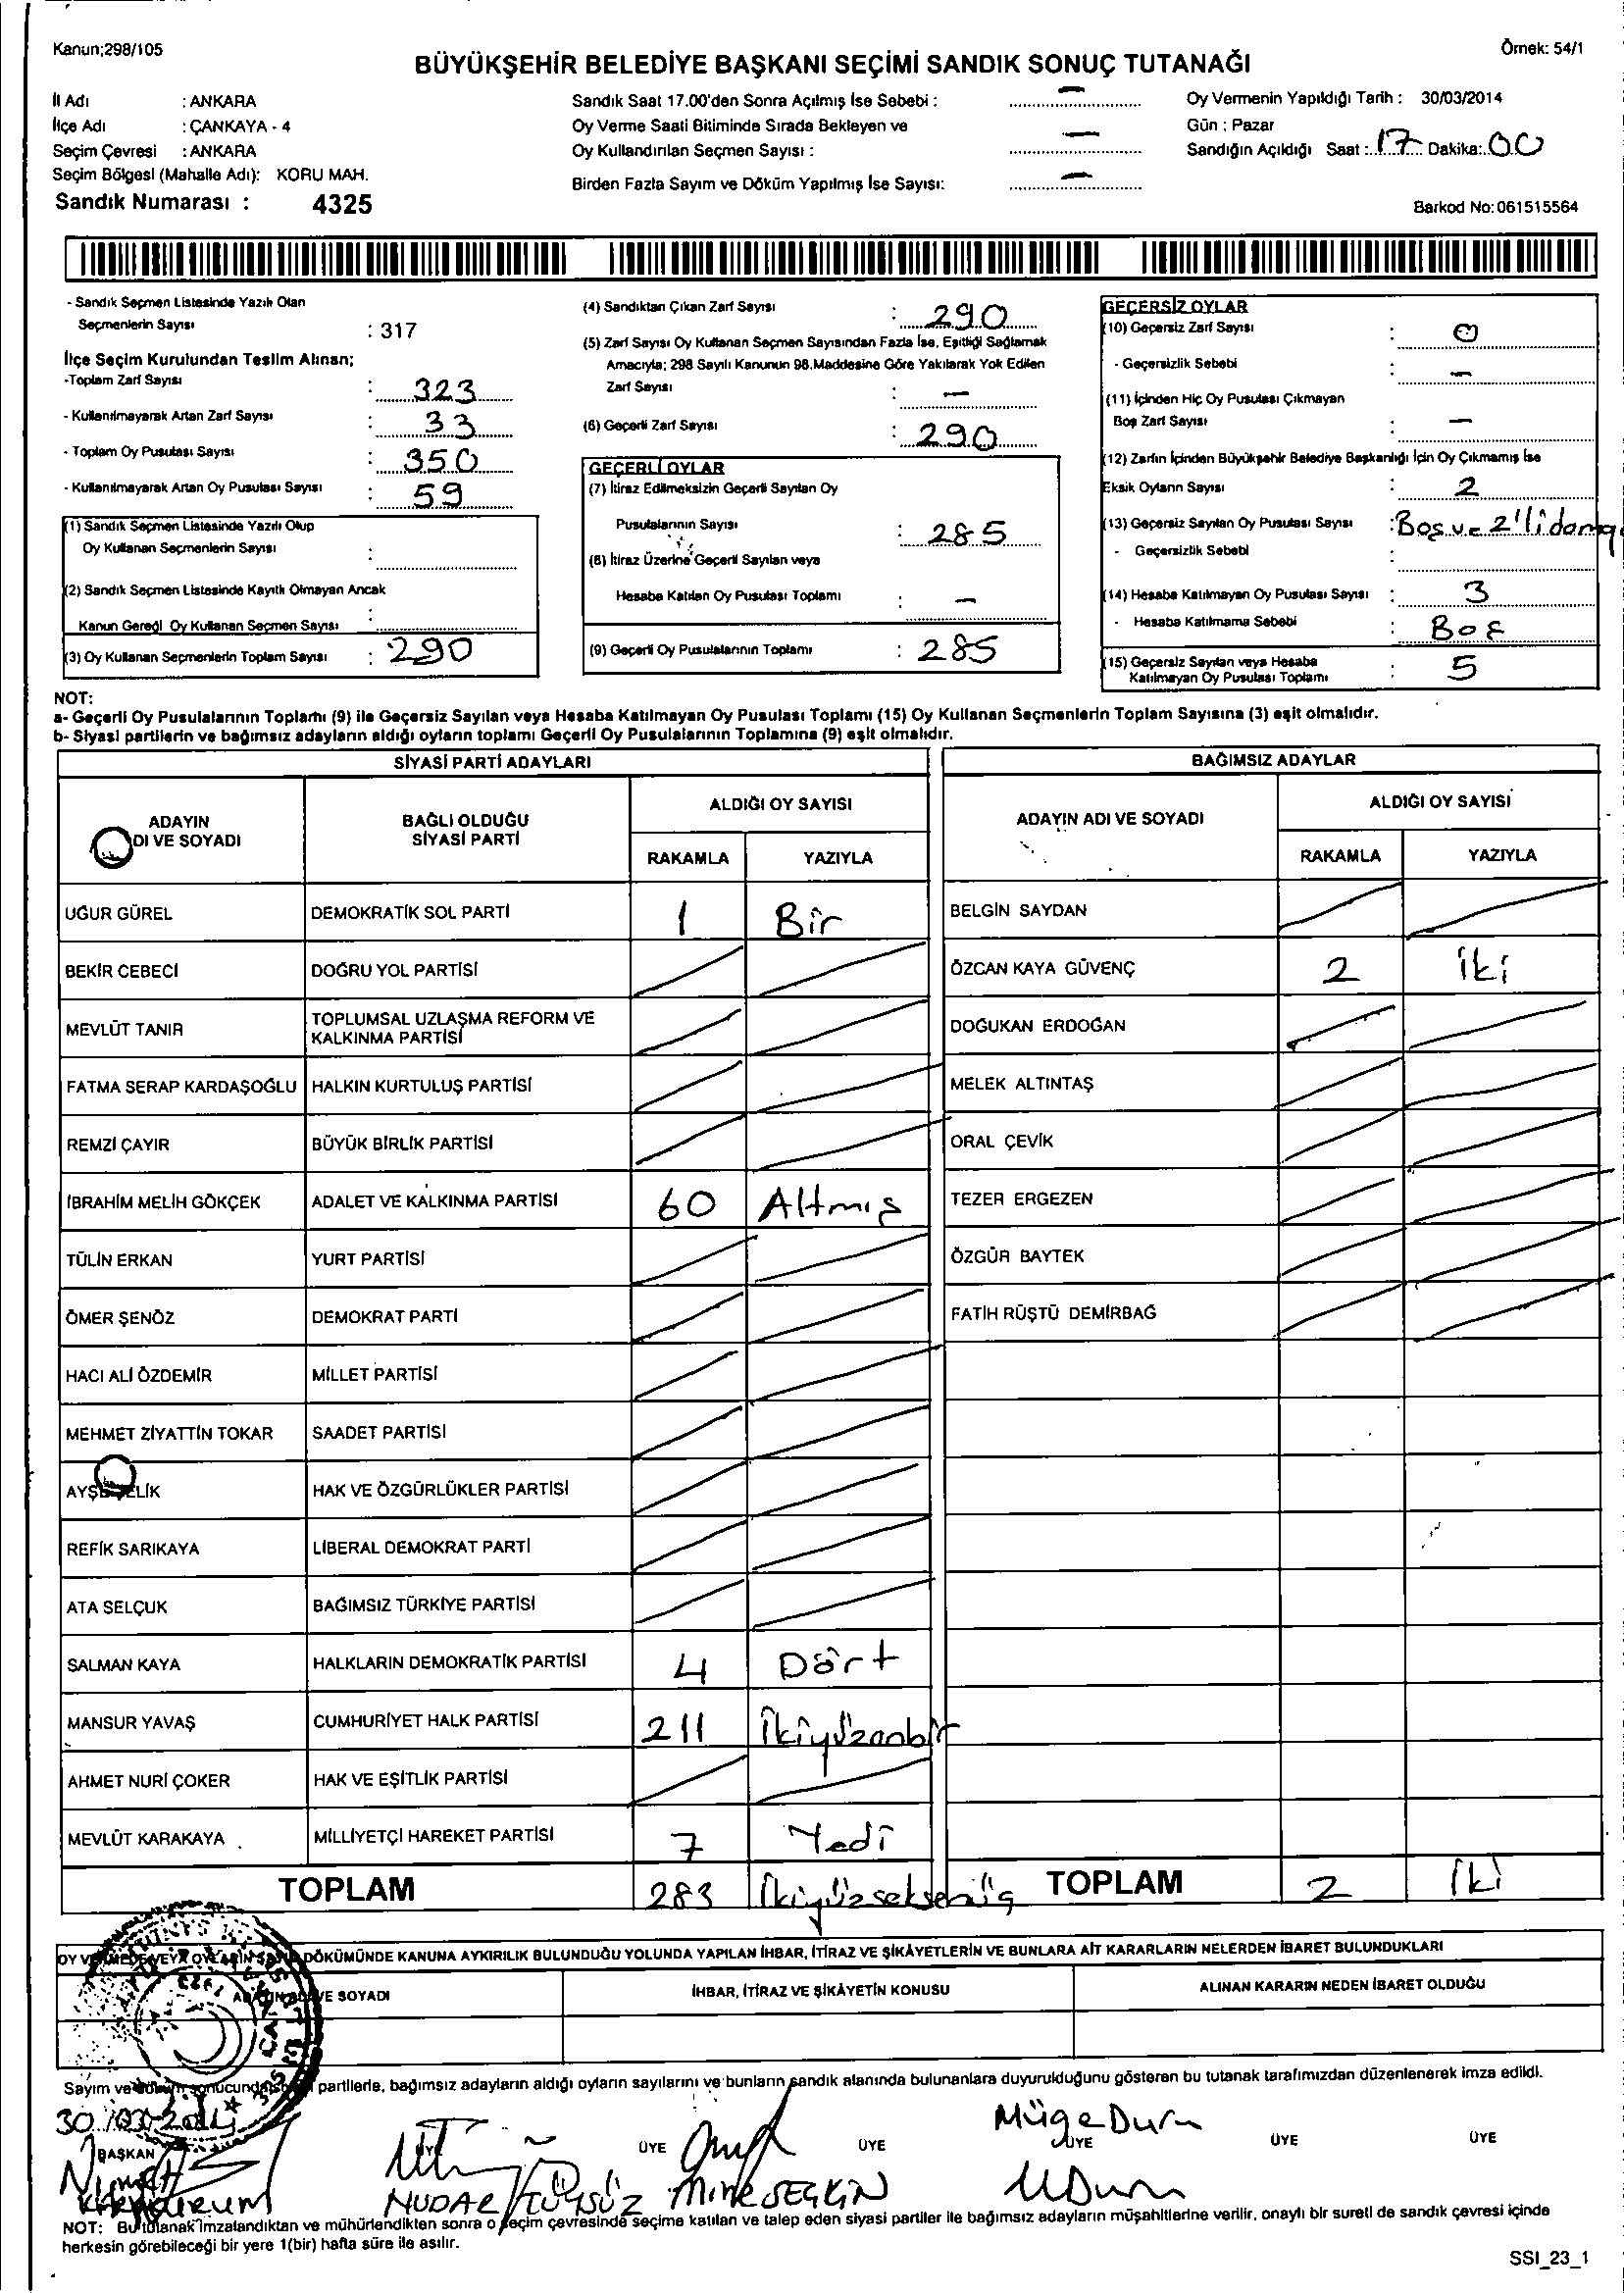 Kanun;298/105
Örnek: 54/1
BÜYÜKŞEHİR BELEDİYE BAŞKANI SEÇİMİ SANDIK SONUÇ TUTANAĞI
İl Adı : ANKARA
İlçe Adı : ÇANKAYA - 4
Seçim Çevresi : ANKARA
Seçim Bölgesi (Mahalle Adı): KORU MAH.
Sandık Numarası : 4325
Sandık Saat 17.00'den Sonra Açılmış İse Sebebi : —
Oy Verme Saati Bitiminde Sırada Bekleyen ve
Oy Kullandırılan Seçmen Sayısı : —
Birden Fazla Sayım ve Döküm Yapılmış İse Sayısı: —
Oy Vermenin Yapıldığı Tarih : 30/03/2014
Gün : Pazar
Sandığın Açıldığı Saat : 17 Dakika: 00
Barkod No: 061515564
- Sandık Seçmen Listesinde Yazılı Olan
Seçmenlerin Sayısı : 317
İlçe Seçim Kurulundan Teslim Alınan;
-Toplam Zarf Sayısı : 323
- Kullanılmayarak Artan Zarf Sayısı : 33
- Toplam Oy Pusulası Sayısı : 350
- Kullanılmayarak Artan Oy Pusulası Sayısı : 59
(1) Sandık Seçmen Listesinde Yazılı Olup
Oy Kullanan Seçmenlerin Sayısı :
(2) Sandık Seçmen Listesinde Kayıtlı Olmayan Ancak
Kanun Gereği Oy Kullanan Seçmen Sayısı :
(3) Oy Kullanan Seçmenlerin Toplam Sayısı : 290
(4) Sandıktan Çıkan Zarf Sayısı : 290
(5) Zarf Sayısı Oy Kullanan Seçmen Sayısından Fazla İse, Eşitliği Sağlamak
Amacıyla; 298 Sayılı Kanunun 98.Maddesine Göre Yakılarak Yok Edilen
Zarf Sayısı : —
(6) Geçerli Zarf Sayısı : 290
GEÇERLİ OYLAR
(7) İtiraz Edilmeksizin Geçerli Sayılan Oy
Pusulalarının Sayısı : 285
(8) İtiraz Üzerine Geçerli Sayılan veya
Hesaba Katılan Oy Pusulası Toplamı : —
(9) Geçerli Oy Pusulalarının Toplamı : 285
GEÇERSİZ OYLAR
(10) Geçersiz Zarf Sayısı : 0
- Geçersizlik Sebebi : —
(11) İçinden Hiç Oy Pusulası Çıkmayan
Boş Zarf Sayısı : —
(12) Zarfın İçinden Büyükşehir Belediye Başkanlığı İçin Oy Çıkmamış İse
Eksik Oyların Sayısı : 2
(13) Geçersiz Sayılan Oy Pusulası Sayısı : Boş ve 2'li
- Geçersizlik Sebebi :
(14) Hesaba Katılmayan Oy Pusulası Sayısı : 3
- Hesaba Katılmama Sebebi : Boş
(15) Geçersiz Sayılan veya Hesaba
Katılmayan Oy Pusulası Toplamı : 5
NOT:
a- Geçerli Oy Pusulalarının Toplamı (9) ile Geçersiz Sayılan veya Hesaba Katılmayan Oy Pusulası Toplamı (15) Oy Kullanan Seçmenlerin Toplam Sayısına (3) eşit olmalıdır.
b- Siyasi partilerin ve bağımsız adayların aldığı oyların toplamı Geçerli Oy Pusulalarının Toplamına (9) eşit olmalıdır.
SİYASİ PARTİ ADAYLARI
ADAYIN
DI VE SOYADI
BAĞLI OLDUĞU
SİYASİ PARTİ
ALDIĞI OY SAYISI
RAKAMLA YAZIYLA
UĞUR GÜREL DEMOKRATİK SOL PARTİ 1 Bir
BEKİR CEBECİ DOĞRU YOL PARTİSİ
MEVLÜT TANIR TOPLUMSAL UZLAŞMA REFORM VE
KALKINMA PARTİSİ
FATMA SERAP KARDAŞOĞLU HALKIN KURTULUŞ PARTİSİ
REMZİ ÇAYIR BÜYÜK BİRLİK PARTİSİ
İBRAHİM MELİH GÖKÇEK ADALET VE KALKINMA PARTİSİ 60 Altmış
TÜLİN ERKAN YURT PARTİSİ
ÖMER ŞENÖZ DEMOKRAT PARTİ
HACI ALİ ÖZDEMİR MİLLET PARTİSİ
MEHMET ZİYATTİN TOKAR SAADET PARTİSİ
AYŞE ÇELİK HAK VE ÖZGÜRLÜKLER PARTİSİ
REFİK SARIKAYA LİBERAL DEMOKRAT PARTİ
ATA SELÇUK BAĞIMSIZ TÜRKİYE PARTİSİ
SALMAN KAYA HALKLARIN DEMOKRATİK PARTİSİ 4 Dört
MANSUR YAVAŞ CUMHURİYET HALK PARTİSİ 211 İkiyüzonbir
AHMET NURİ ÇOKER HAK VE EŞİTLİK PARTİSİ
MEVLÜT KARAKAYA MİLLİYETÇİ HAREKET PARTİSİ 7 Yedi
TOPLAM 283 İkiyüzseksenüç
BAĞIMSIZ ADAYLAR
ADAYIN ADI VE SOYADI
ALDIĞI OY SAYISI
RAKAMLA YAZIYLA
BELGİN SAYDAN
ÖZCAN KAYA GÜVENÇ 2 iki
DOĞUKAN ERDOĞAN
MELEK ALTINTAŞ
ORAL ÇEVİK
TEZER ERGEZEN
ÖZGÜR BAYTEK
FATİH RÜŞTÜ DEMİRBAĞ
TOPLAM 2 İki
DÖKÜMÜNDE KANUNA AYKIRILIK BULUNDUĞU YOLUNDA YAPILAN İHBAR, İTİRAZ VE ŞİKÂYETLERİN VE BUNLARA AİT KARARLARIN NELERDEN İBARET BULUNDUKLARI
VE SOYADI
İHBAR, İTİRAZ VE ŞİKÂYETİN KONUSU
ALINAN KARARIN NEDEN İBARET OLDUĞU
Sayım ve partilerle, bağımsız adayların aldığı oyların sayılarını ve bunların sandık alanında bulunanlara duyurulduğunu gösteren bu tutanak tarafımızdan düzenlenerek imza edildi.
Müge Duru
BAŞKAN ÜYE ÜYE ÜYE ÜYE ÜYE ÜYE
Mine SEÇKİN
NOT: Bu tutanak imzalandıktan ve mühürlendikten sonra o seçim çevresinde seçime katılan ve talep eden siyasi partiler ile bağımsız adayların müşahitlerine verilir, onaylı bir sureti de sandık çevresi içinde
herkesin görebileceği bir yere 1(bir) hafta süre ile asılır.
SSI_23_1